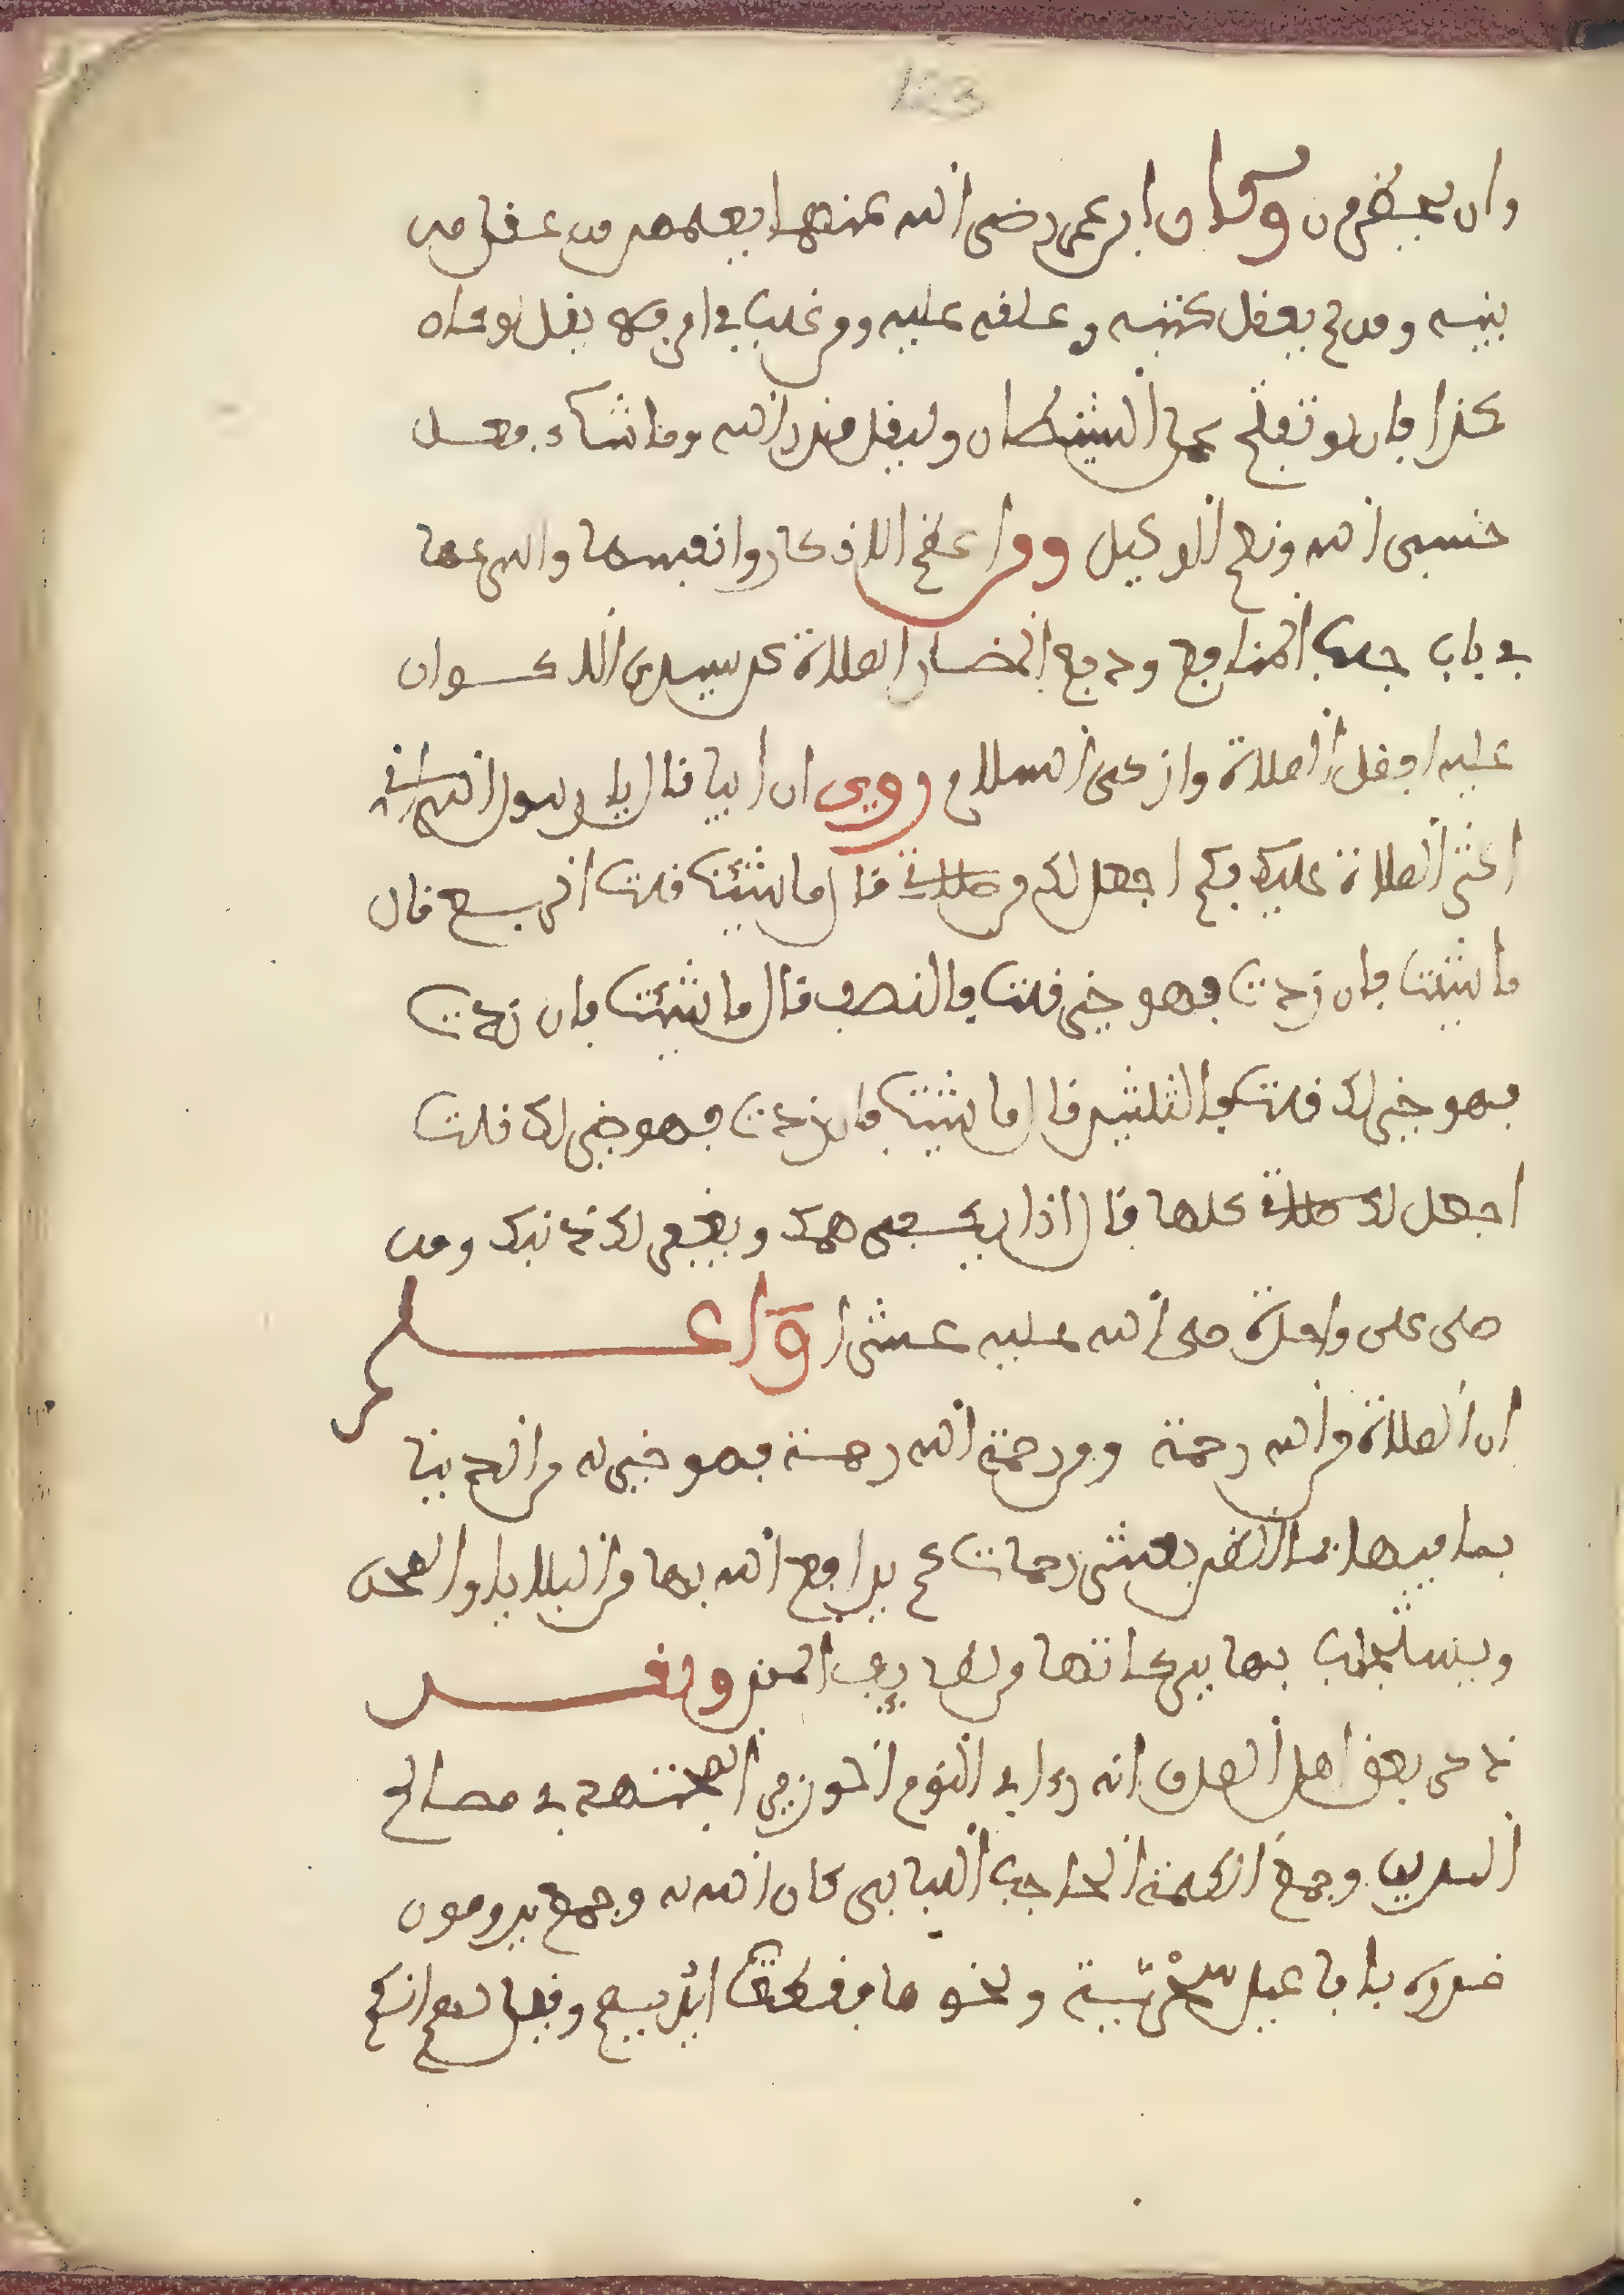 123
وان يحضرون وكان ابن عمر رضي الله عنهما يعلمهن من عقل من
بنيه ومن لم يعقل كتبه وعلقه عليه ومن غلب في امر فلا يقل لو
كذا فان لو تفتح عمل الشيطان وليقل قدر الله وما شاء فعل
حسبي الله ونعم الوكيل ومن اعظم الاذكار وانفسها واسرعها
في باب جلب المنافع ودفع المضار الصلاة على سيد الاكوان
عليه افضل الصلاة وازكى السلام روي ان ابيا قال يا رسول الله اني
اكثر الصلاة عليك فكم اجعل لك من صلاتي قال ما شئت قلت الربع قال
ما شئت فان زدت فهو خير قلت فالنصف قال ما شئت فان زدت
فهو خير لك قلت فالثلثين قال ما شئت فان زدت فهو خير لك قلت
اجعل لك صلاتي كلها قال اذا يكفى همك ويغفر لك ذنبك ومن
صلى علي واحدة صلى الله عليه عشرا واعلم
ان الصلاة من الله رحمة ومن رحمه الله رحمة فهو خير له من الدنيا
بما فيها فما الظن بعشر رحمات كم يدافع الله بها من البلايا والمحن
ويستجلب بها ببركاتها من لطايف المنن ولقد
ذكر بعض اهل الصدق انه رءا في النوم الوزير المجتهد في مصالح
الدين وجمع الكلمة الحاجب اللبابي كان الله له وجمع يرومون
ضرره باباعيل سحرية ونحوها فقطعت ايديهم وقيل لهم انكم